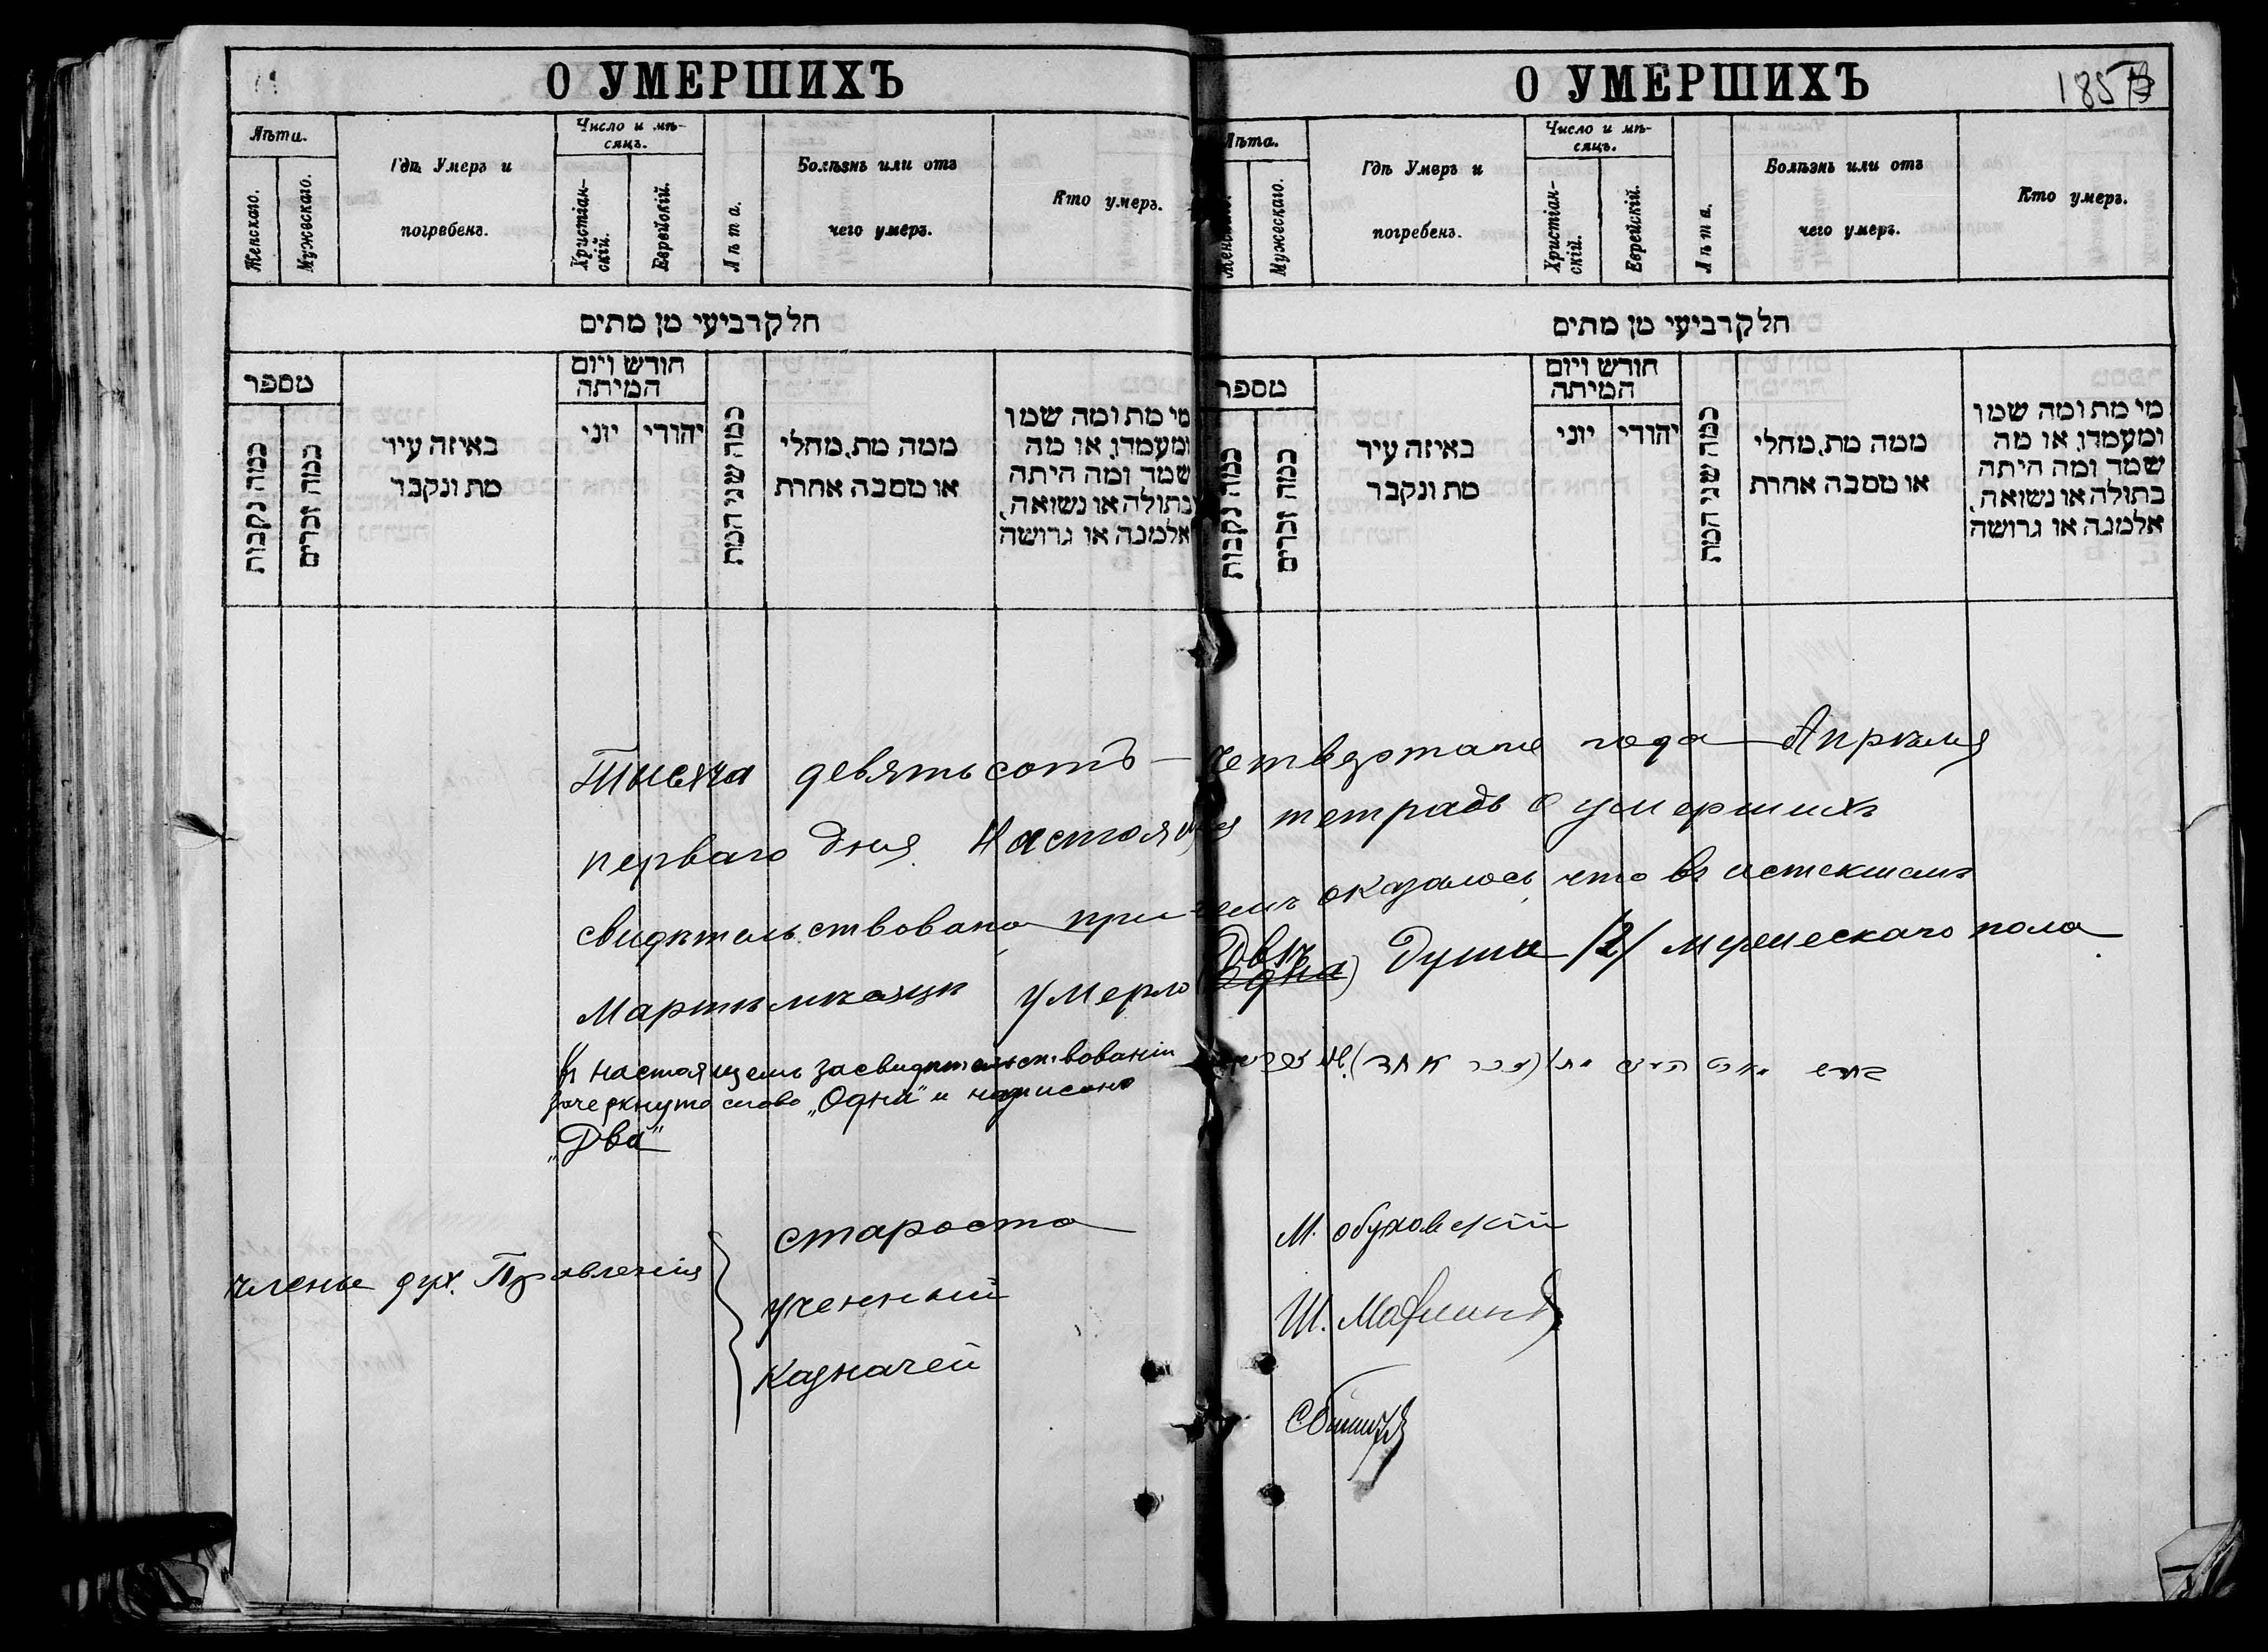 О УМЕРШИХЪ
Лѣта.
Женскаго.
Мужескаго.
Гдѣ Умеръ и
погребенъ.
Число и мѣ-
сяцъ.
Христіан-
скій.
Еврейскій.
Лѣта.
Болѣзнь или отъ
чего умеръ.
Кто умеръ.
חלק רביעי מן מתים
מספר
כמה נקבות
כמה זכרים
באיזה עיר
מת ונקבר
חורש ויום
המיתה
יוני
יהודי
כמה שני המת
ממה מת, מחלי
או מסבה אחרת
מי מת ומה שמו
ומעמדו, או מה
שמה ומה היתה
בתולה או נשואה,
אלמנה או גרושה
О УМЕРШИХЪ
185
Лѣта.
Женскаго.
Мужескаго.
Гдѣ Умеръ и
погребенъ.
Число и мѣ-
сяцъ.
Христіан-
скій.
Еврейскій.
Лѣта.
Болѣзнь или отъ
чего умеръ.
Кто умеръ.
חלק רביעי מן מתים
מספר
כמה נקבות
כמה זכרים
באיזה עיר
מת ונקבר
חורש ויום
המיתה
יוני
יהודי
כמה שני המת
ממה מת, מחלי
או מסבה אחרת
מי מת ומה שמו
ומעמדו, או מה
שמה ומה היתה
בתולה או נשואה,
אלמנה או גרושה
Тысяча девятьсотъ – четвертаго года Апрѣля
перваго дня. Настоящая тетрадь о умершихъ
свидѣтельствована причемъ оказалось, что въ истекшемъ
Мартѣ мѣсяцѣ умерло (Одна) Двѣ душа /2/ мужескаго пола
Въ настоящемъ засвидѣтельствованіи
зачеркнуто слово „Одна" и написано
„Два"
Члены дух. Правленія
староста
ученный
казначей
М. Обуховскій
Ш.